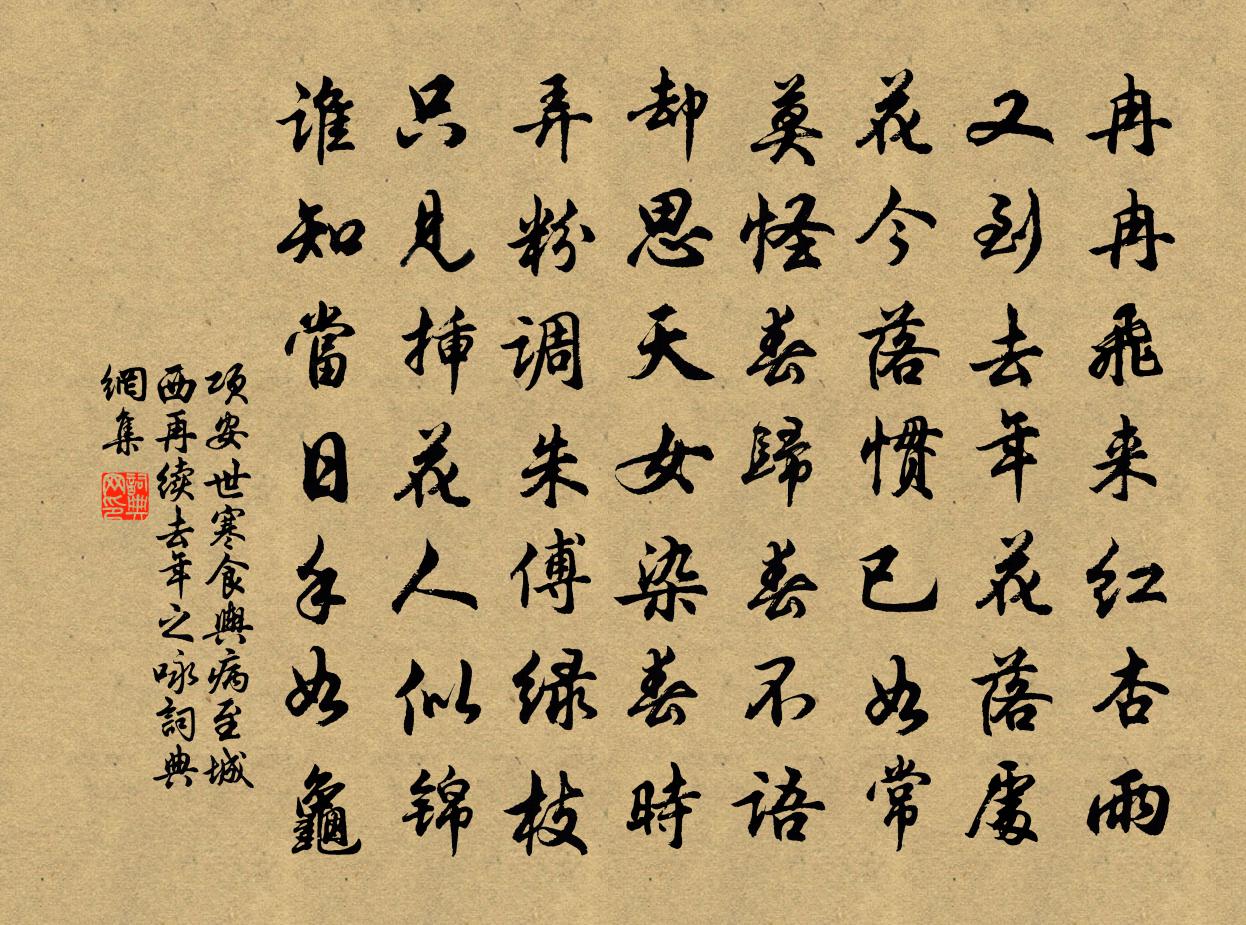 冉冉飛来红杏雨
又到去年花落處
花今落惯已如常
莫怪春歸春不語
却思天女染春時
弄粉调朱傅绿枝
只见插花人似锦
谁知當日手如龜
项安世寒食輿病至城
西再續去年之咏詞典
網集
詞典
网印